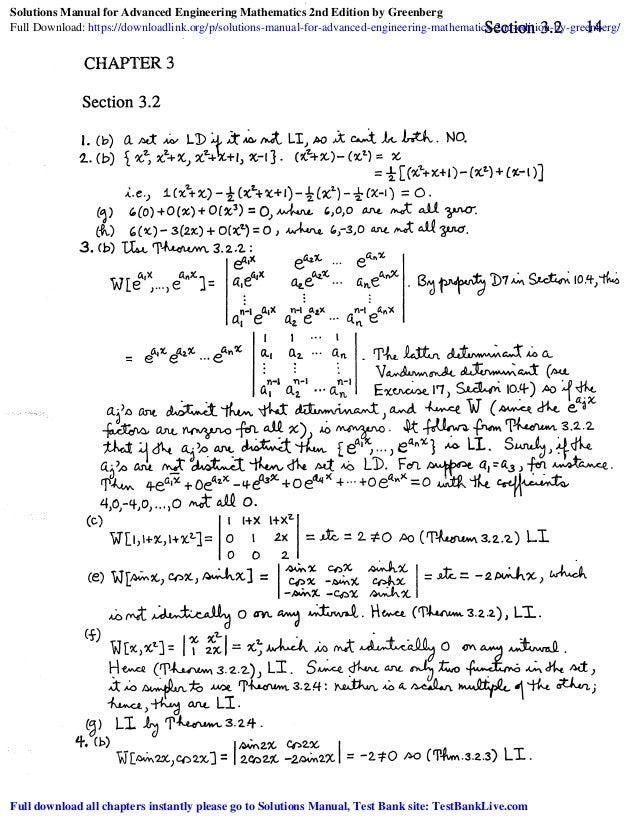 Solutions Manual for Advanced Engineering Mathematics 2nd Edition by Greenberg
Full Download: https://downloadlink.org/p/solutions-manual-for-advanced-engineering-mathematics-2nd-edition-by-greenberg/
Section 3.2 14
CHAPTER 3
Section 3.2
1. (b) a set is LD if it is not LI, so it can't be both. NO.
2. (b) {x², x²+x, x²+x+1, x-1}. (x²+x)-(x²) = x
= ½[(x²+x+1)-(x²)+(x-1)]
i.e., 1(x²+x)-½(x²+x+1)-½(x²)-½(x-1) = 0.
(g) 6(0)+0(x)+0(x³) = 0, where 6,0,0 are not all zero.
(h) 6(x)-3(2x)+0(x²)=0, where 6,-3,0 are not all zero.
3. (b) Use Theorem 3.2.2:
W[e^{a₁x},...,e^{aₙx}] = | e^{a₁x} e^{a₂x} ... e^{aₙx} |
| a₁e^{a₁x} a₂e^{a₂x} ... aₙe^{aₙx} | . By property D7 in Section 10.4, this
| ⋮ ⋮ ⋮ |
| a₁^{n-1}e^{a₁x} a₂^{n-1}e^{a₂x} ... aₙ^{n-1}e^{aₙx} |
= e^{a₁x}e^{a₂x}...e^{aₙx} | 1 1 ... 1 |
| a₁ a₂ ... aₙ | . The latter determinant is a
| ⋮ ⋮ ⋮ | Vandermonde determinant (see
| a₁^{n-1} a₂^{n-1} ... aₙ^{n-1} | Exercise 17, Section 10.4) so if the
aⱼ's are distinct then that determinant, and hence W (since the e^{aⱼx}
factors are nonzero for all x), is nonzero. It follows from Theorem 3.2.2
that if the aⱼ's are distinct then {e^{a₁x},...,e^{aₙx}} is LI. Surely, if the
aⱼ's are not distinct then the set is LD. For suppose a₁=a₃, for instance.
Then 4e^{a₁x}+0e^{a₂x}-4e^{a₃x}+0e^{a₄x}+...+0e^{aₙx}=0 with the coefficients
4,0,-4,0,...,0 not all 0.
(c)
W[1,1+x,1+x²] = | 1 1+x 1+x² |
| 0 1 2x | = etc = 2 ≠ 0 so (Theorem 3.2.2) LI
| 0 0 2 |
(e) W[sinx, cosx, sinhx] = | sinx cosx sinhx |
| cosx -sinx coshx | = etc = -2sinhx, which
| -sinx -cosx sinhx |
is not identically 0 on any interval. Hence (Theorem 3.2.2), LI.
(f)
W[x,x²] = | x x² |
| 1 2x | = x², which is not identically 0 on any interval.
Hence (Theorem 3.2.2), LI. Since there are only two functions in the set,
it is simpler to use Theorem 3.24: neither is a scalar multiple of the other;
hence, they are LI.
(g) LI by Theorem 3.24.
4. (b)
W[sin2x, cos2x] = | sin2x cos2x |
| 2cos2x -2sin2x | = -2≠0 so (Thm.3.2.3) LI.
Full download all chapters instantly please go to Solutions Manual, Test Bank site: TestBankLive.com